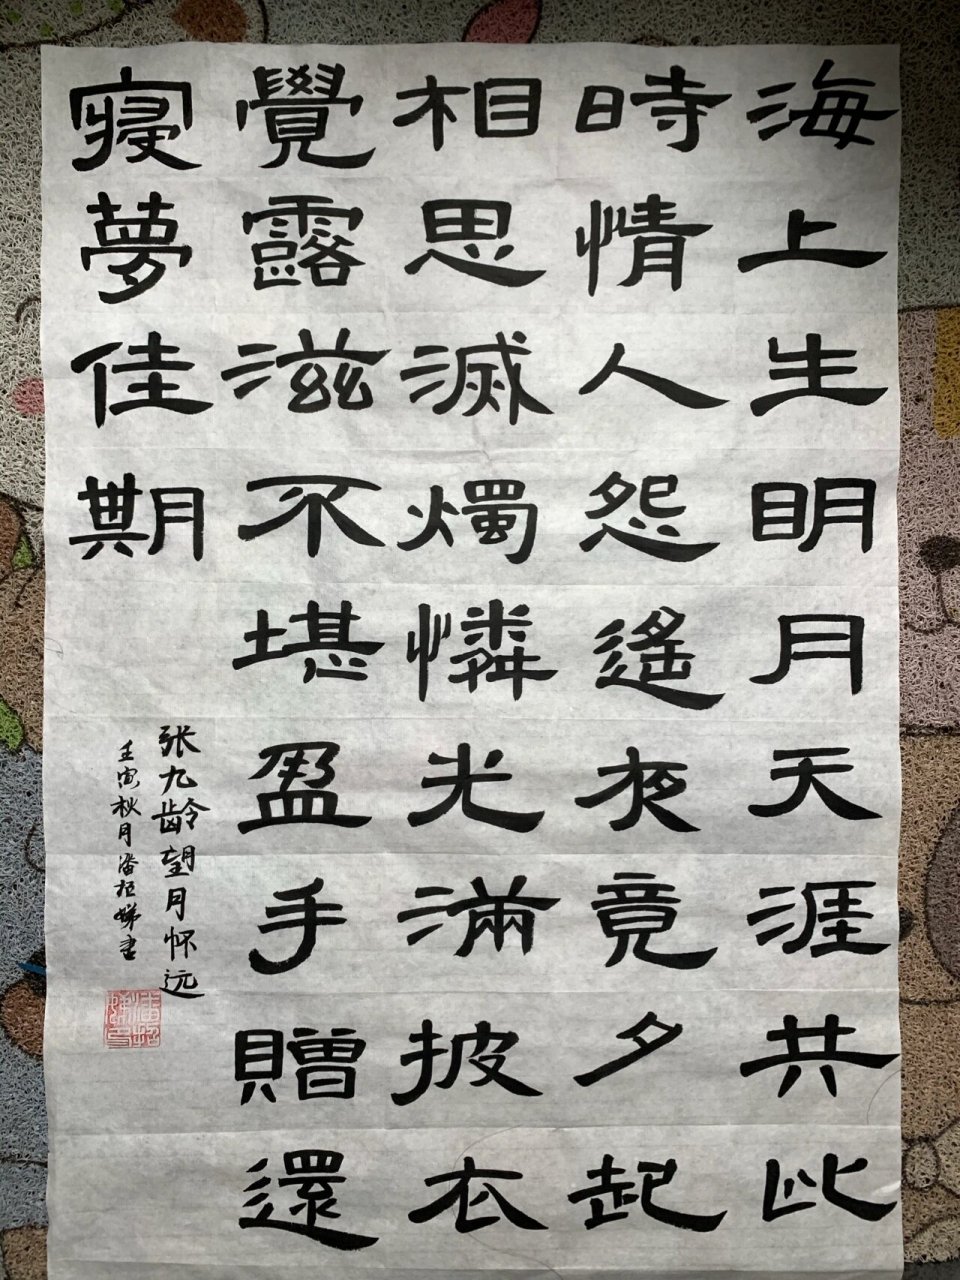 海上生明月天涯共此
時情人怨遙夜竟夕起
相思滅燭憐光滿披衣
覺露滋不堪盈手贈還
寢夢佳期
张九龄望月怀远
壬寅秋月潘
书